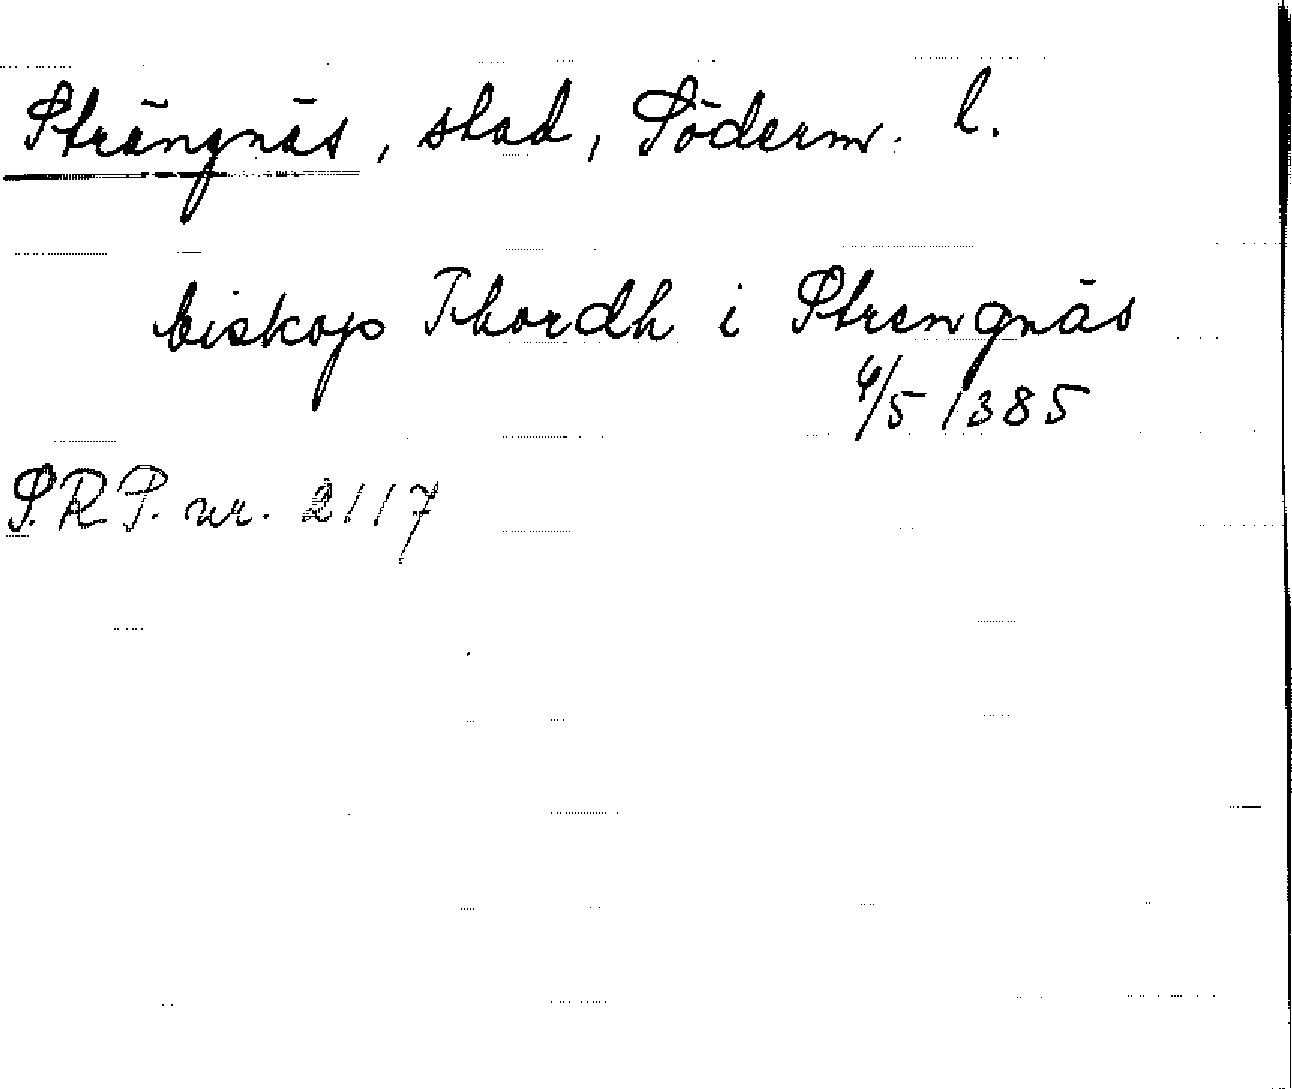 Strängnäs, stad, Söderm. l.
biskop Thordh i Strengnäs
4/5 1385
S.R.P. nr. 2117